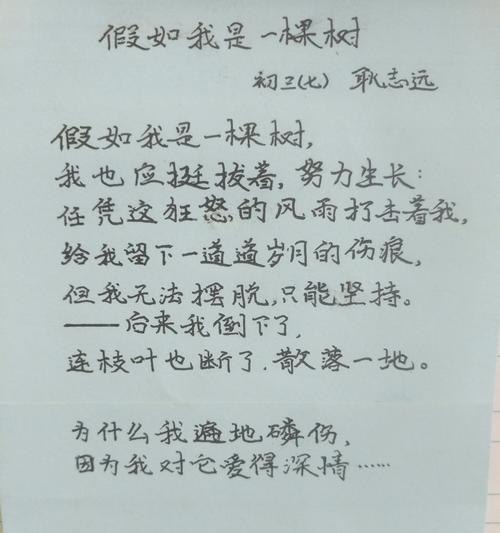 假如我是一棵树
初三(七) 耿志远
假如我是一棵树,
我也应挺拔着,努力生长:
任凭这狂怒的风雨打击着我,
给我留下一道道岁月的伤痕,
但我无法摆脱,只能坚持。
——后来我倒下了,
连枝叶也断了,散落一地。
为什么我遍地磷伤,
因为我对它爱得深情……